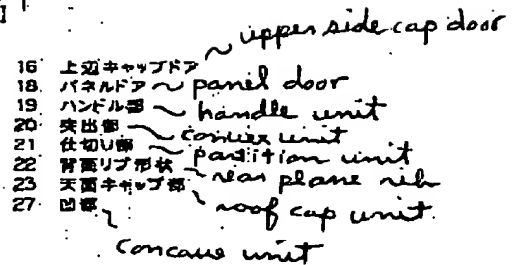 16 上辺キャップドア ~ upper side cap door
18. パネルドア ~ panel door
19 ハンドル部 ~ handle unit
20. 突出部 ~ convex unit
21 仕切り部 ~ partition unit
22 背面リブ形状 ~ rear plane rib
23 天面キャップ部 ~ roof cap unit.
27. 凹部 ~ concave unit